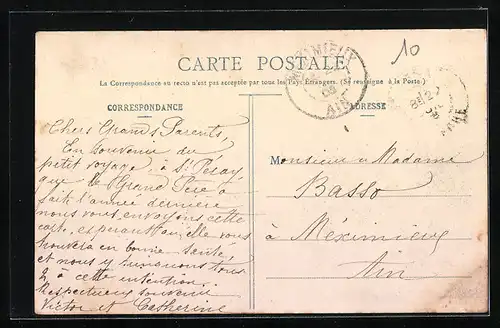 10
CARTE POSTALE
La Correspondance au recto n'est pas acceptée par tous les Pays Étrangers. (Se renseigner à la Poste.)
MEXIMIEUX
AIN
CORRESPONDANCE
ADRESSE
Chers Grands Parents,
En souvenir du
petit voyage, à St Péray
que le Grand Père a
fait l'année dernière
nous vous envoyons cette
carte, espérant qu'elle vous
trouvera en bonne santé,
et nous y trinquons tous
2 à cette intention.
Respectueux souvenir
Victor et Catherine
Monsieur & Madame
Basso
à Méximieux
Ain